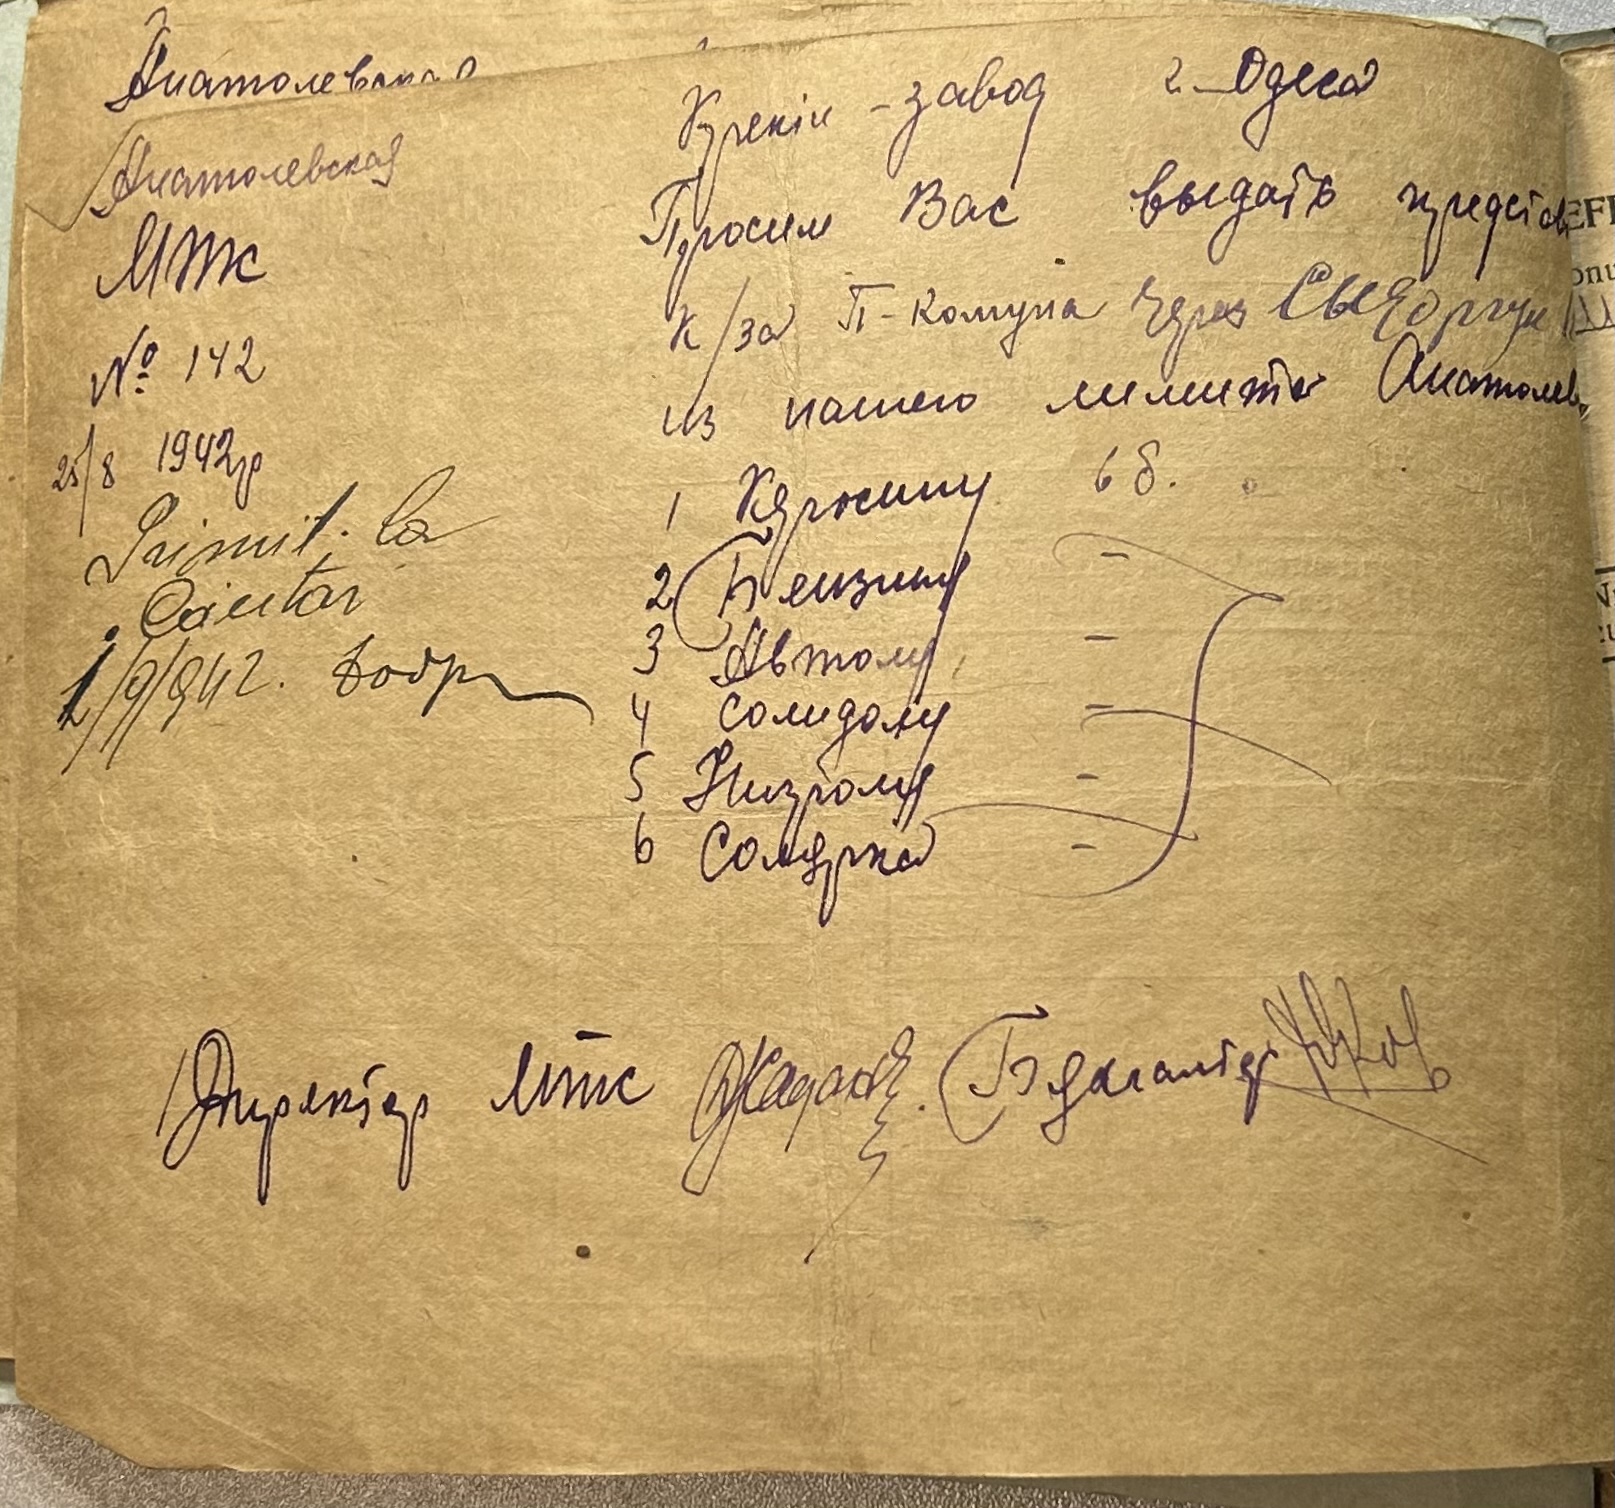 Анатолевская
Анатолевская
МТС
№ 142
25/8 1942 г
Primit. la
Căutar
1/9/942.
Крекін-завод г. Одеса
Просим Вас выдать представ
к/за П-Комуна через
из нашего лимита Анатолев
1 Керосину 6 б.
2 Бензину -
3 Автолу -
4 Солидолу -
5 Нигролу -
6 Солярка -
Директор МТС Бухгалтер
EFE
N